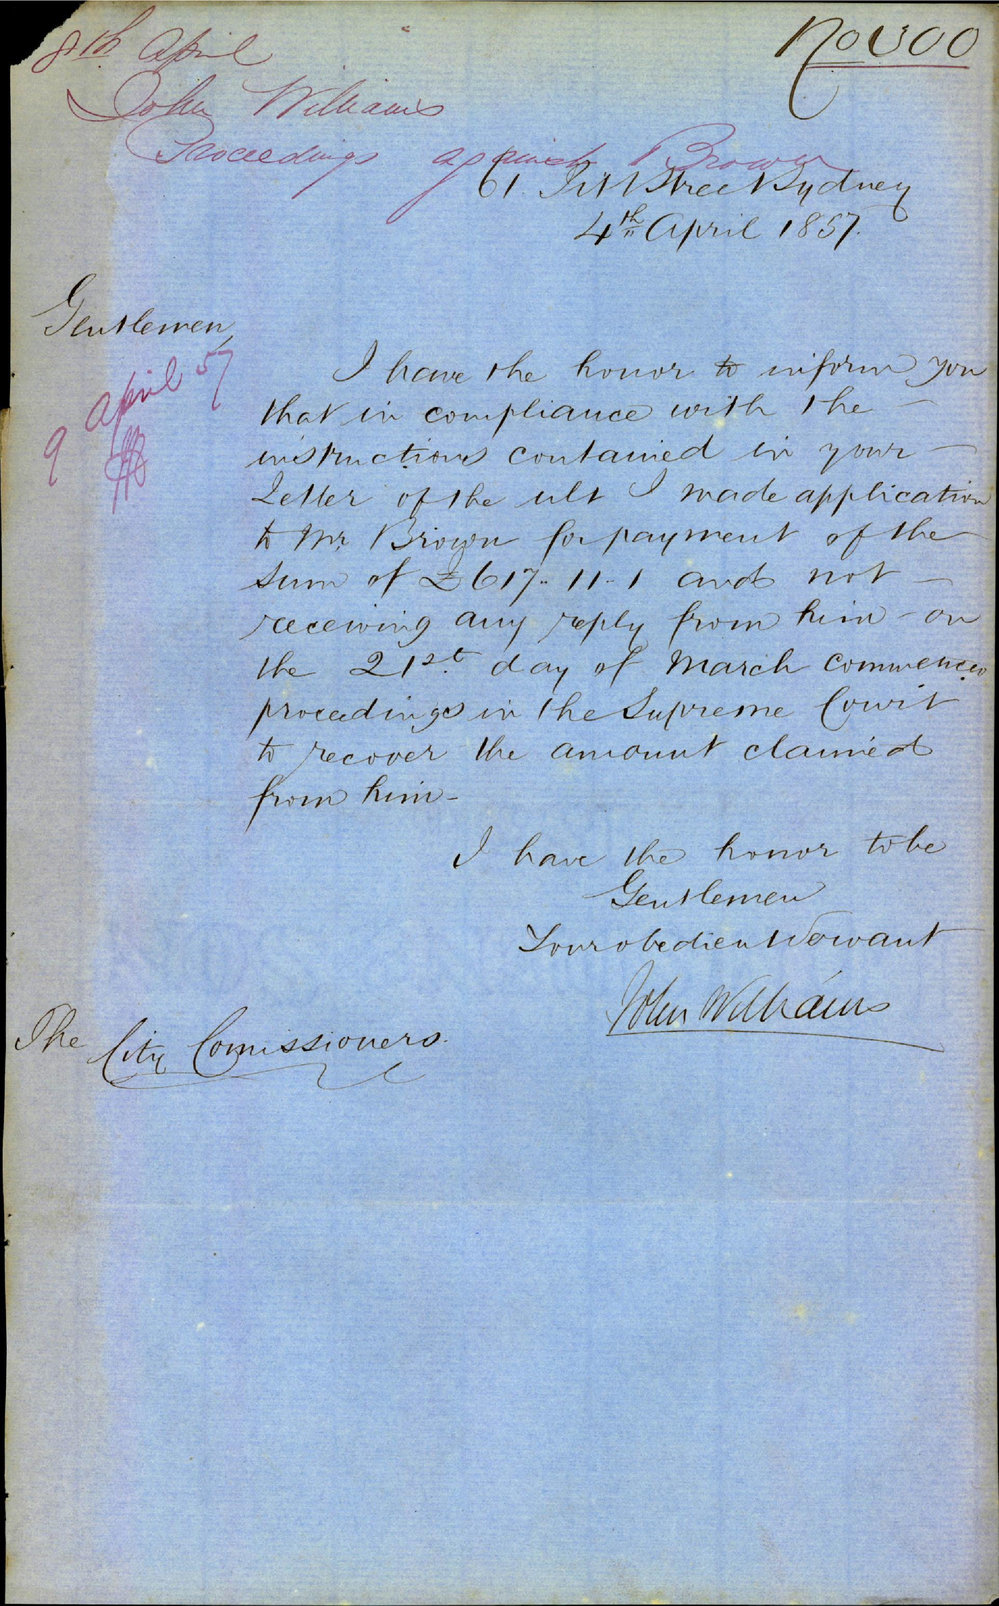 8th April
No 300
John Williams
Proceedings against Brown
61. Pitt Street Sydney
4th April 1857.
Gentlemen,
9 April 57
I have the honor to inform you
that in compliance with the –
instructions contained in your –
Letter of the ult I made application
to Mr. Brown for payment of the
sum of £617-11-1 and not –
receiving any reply from him – on
the 21st. day of March commenced
proceedings in the Supreme Court
to recover the amount claimed
from him –
I have the honor to be
Gentlemen
Your obedient Servant
John Williams
The City Comissioners.